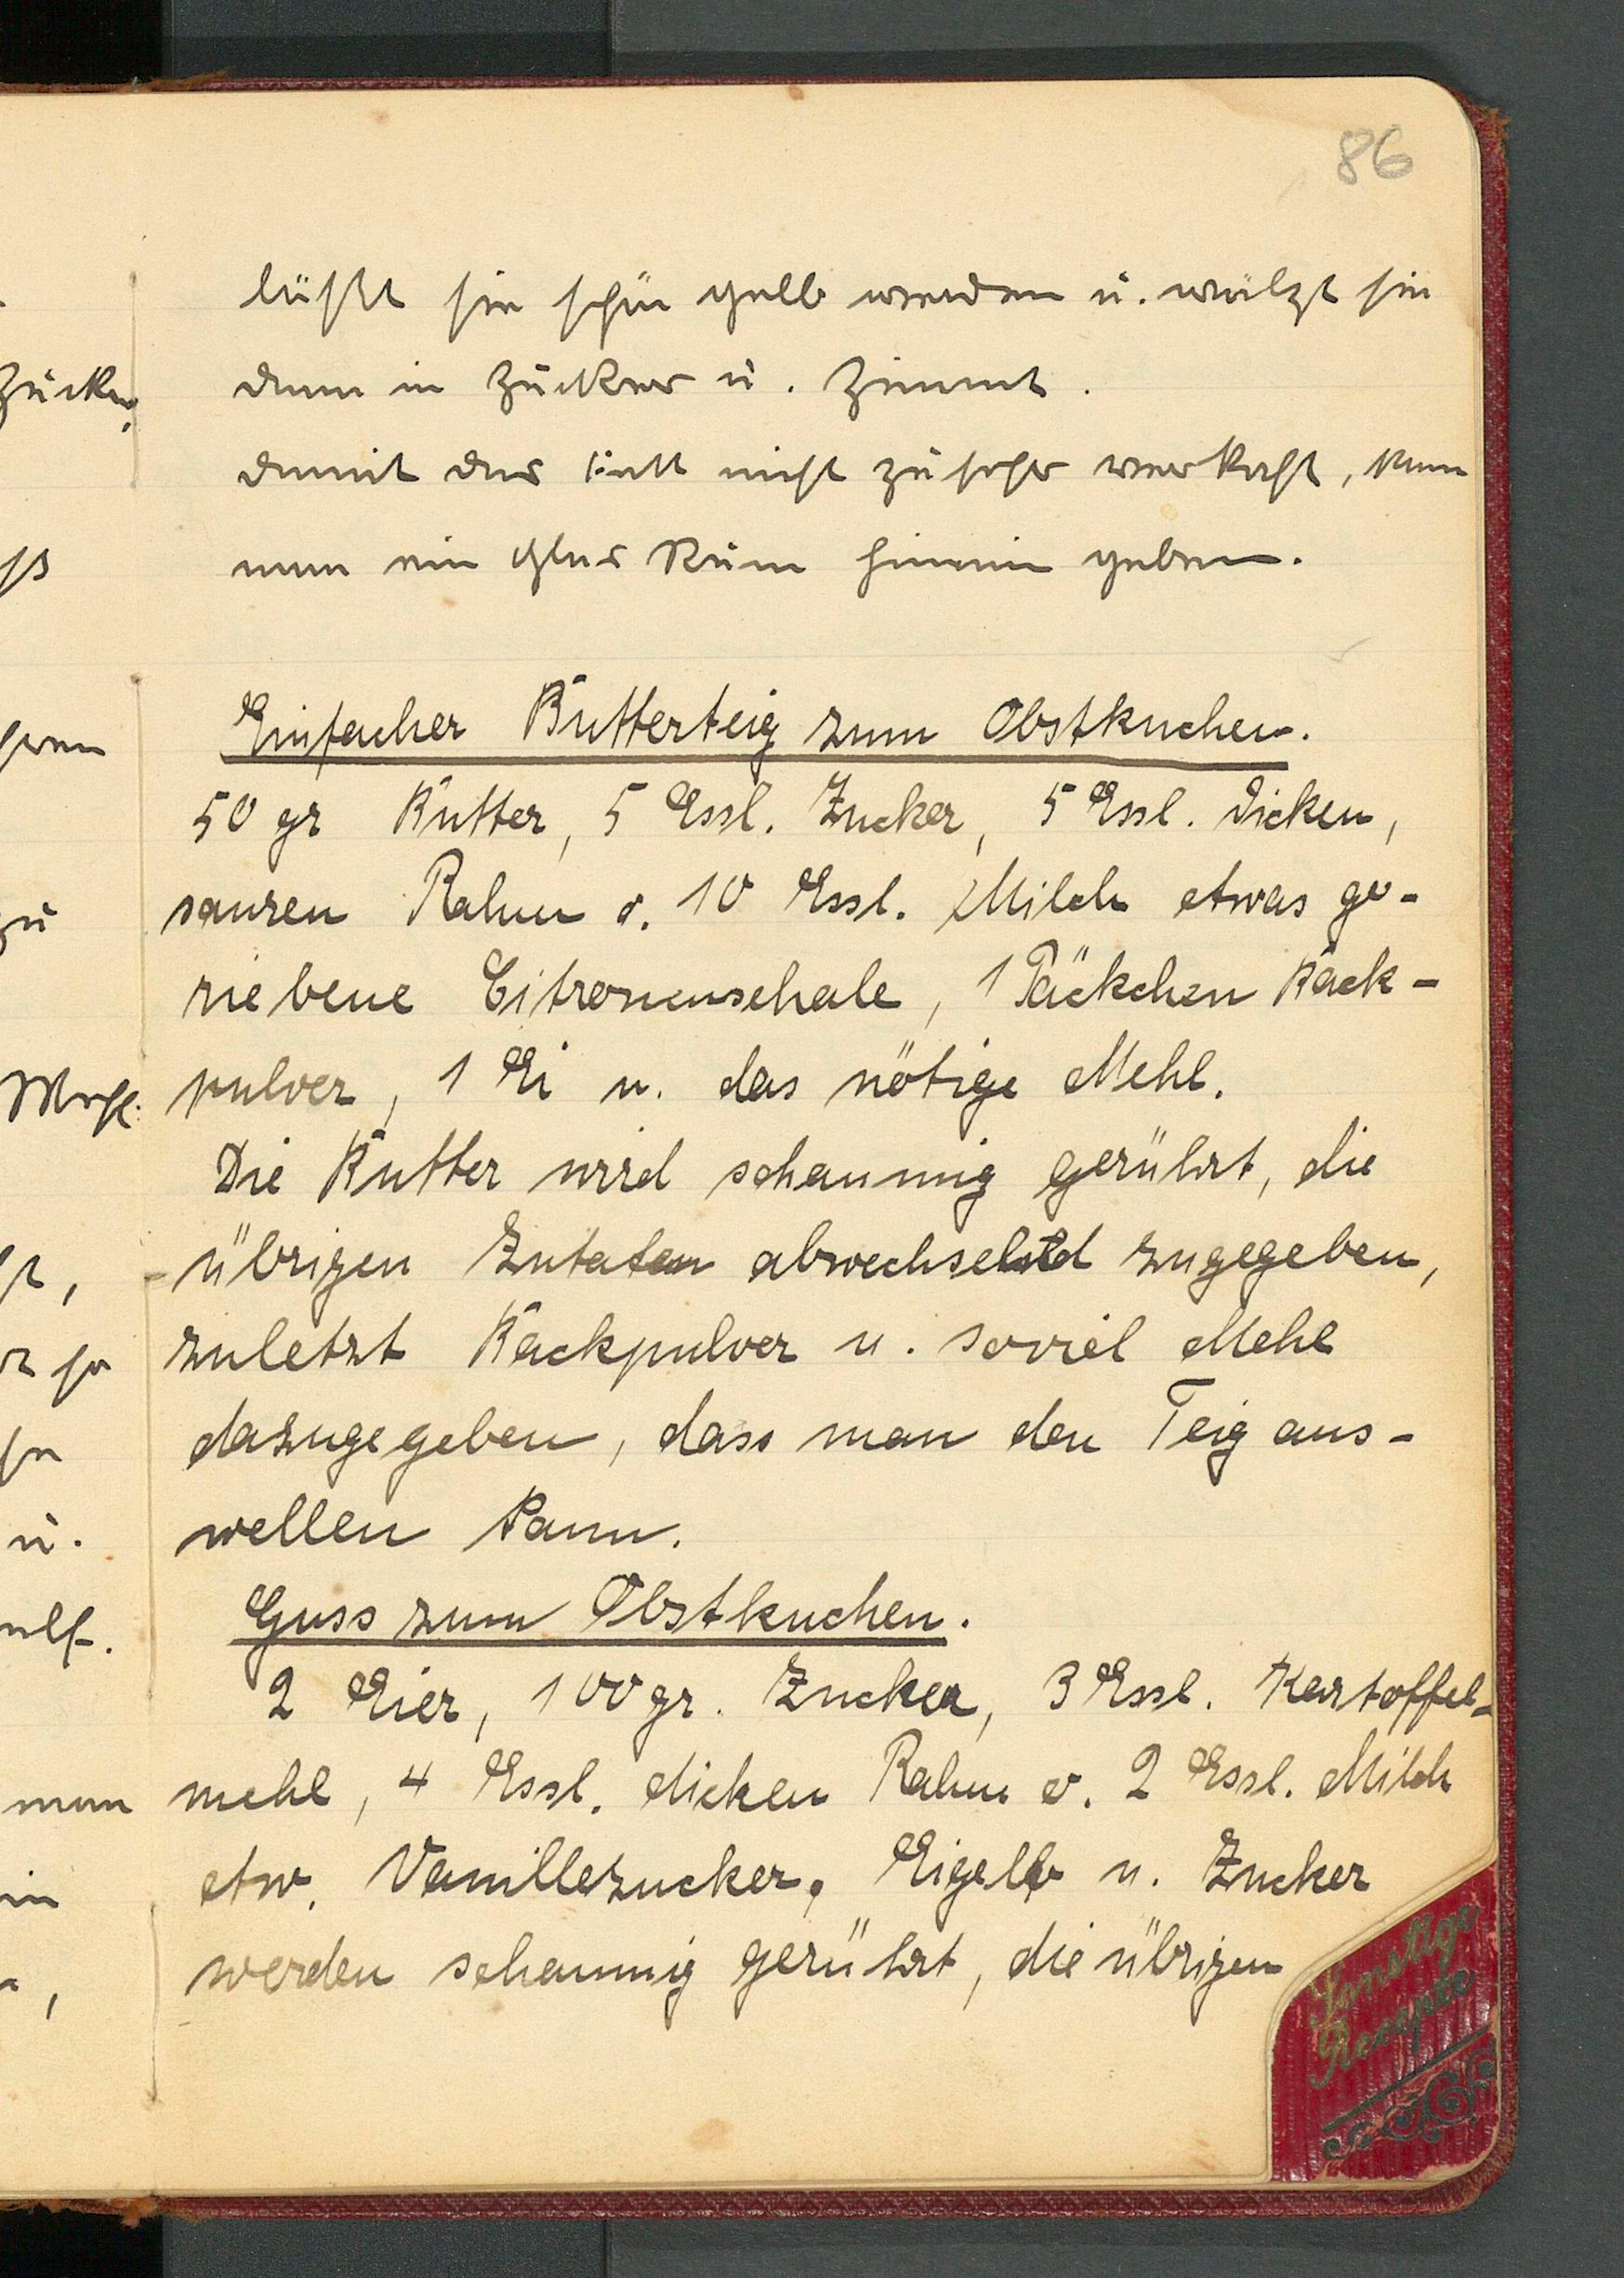 86
läßt sie schön gelb werden u. wälzt sie
dann in Zucker u. Zimmt.
damit das Fett nicht zu sehr verkocht, kann
man ein Glas Rum hinein geben.
Einfacher Butterteig zum Obstkuchen.
50 gr Butter, 5 Essl. Zucker, 5 Essl. dicken,
sauren Rahm o. 10 Essl. Milch etwas ge-
riebene Citronenschale, 1 Päckchen Back-
pulver, 1 Ei u. das nötige Mehl.
Die Butter wird schaumig gerührt, die
übrigen Zutaten abwechselnd zugegeben,
zuletzt Backpulver u. soviel Mehl
dazugegeben, dass man den Teig aus-
wellen kann.
Guss zum Obstkuchen.
2 Eier, 100 gr. Zucker, 3 Essl. Kartoffel-
mehl, 4 Essl. dicken Rahm o. 2 Essl. Milch
etw. Vanillezucker. Eigelb u. Zucker
werden schaumig gerührt, die übrigen
Sonstige
Recepte